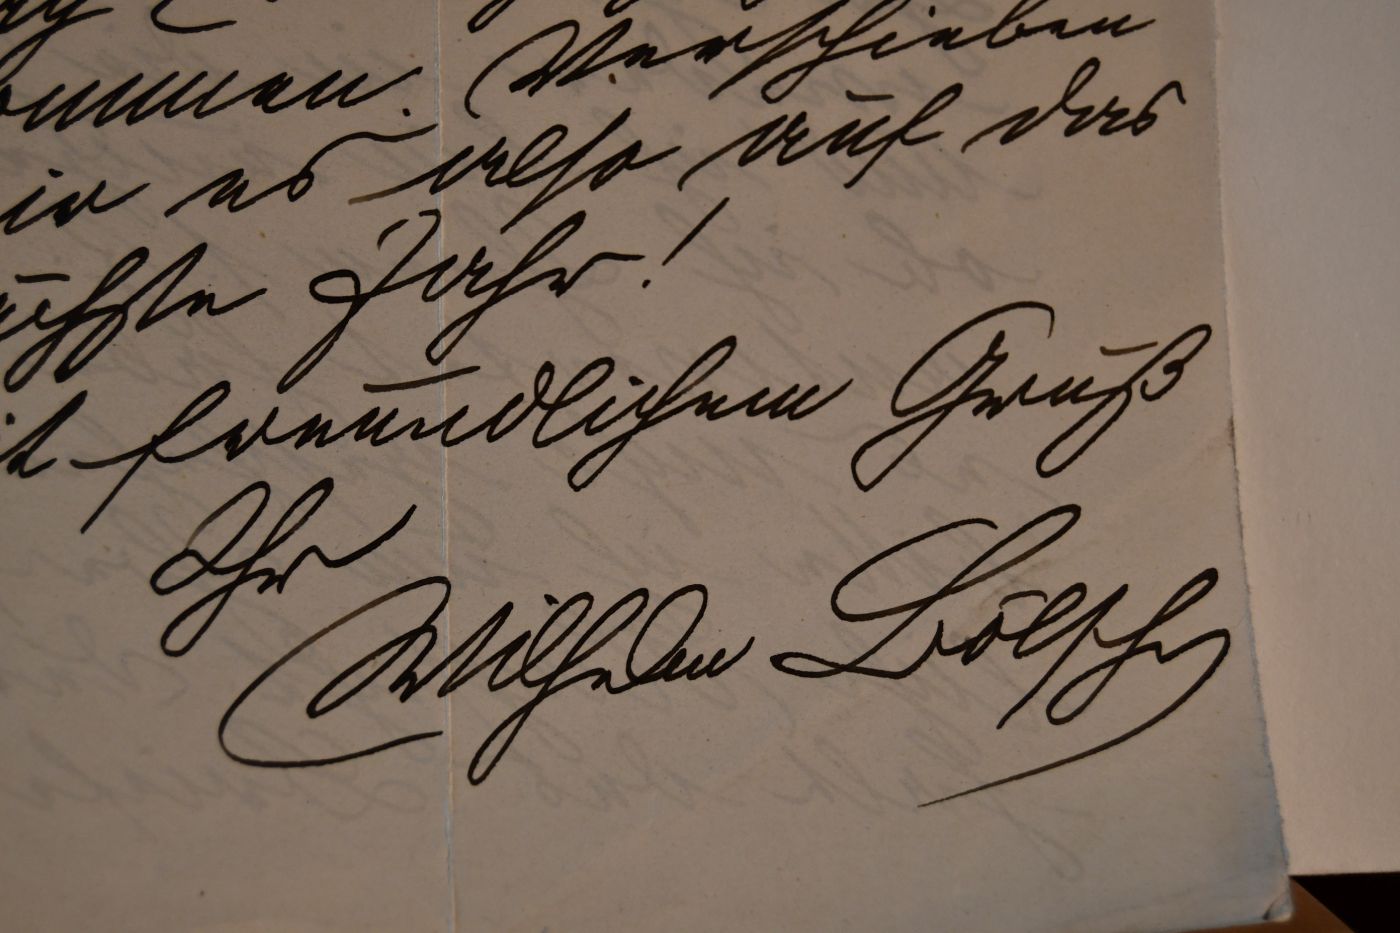 ommen. Verschieben
ir es also auf das
ächste Jahr!
it freundlichem Gruß
Ihr
Wilhelm Bölsche